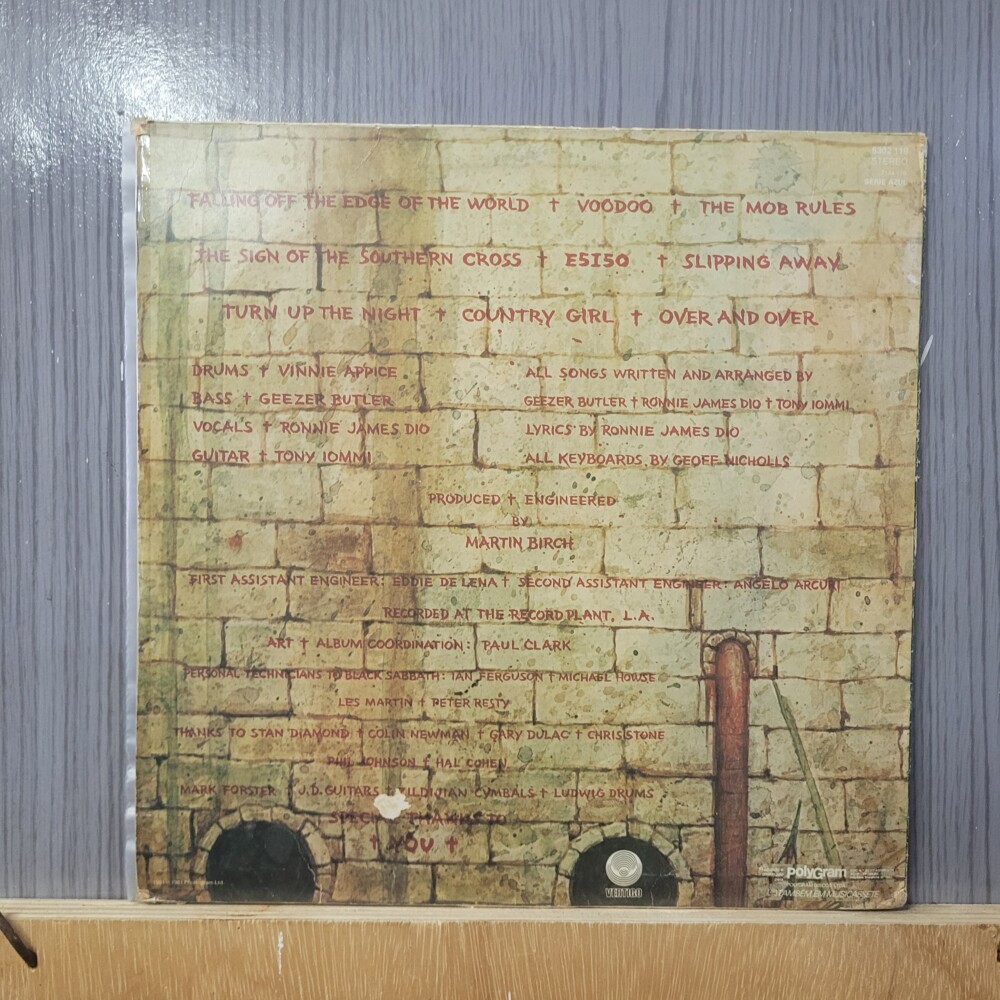 STEREO
FALLING OFF THE EDGE OF THE WORLD † VOODOO † THE MOB RULES
THE SIGN OF THE SOUTHERN CROSS † E5150 † SLIPPING AWAY
TURN UP THE NIGHT † COUNTRY GIRL † OVER AND OVER
DRUMS † VINNIE APPICE
BASS † GEEZER BUTLER
VOCALS † RONNIE JAMES DIO
GUITAR † TONY IOMMI
ALL SONGS WRITTEN AND ARRANGED BY
GEEZER BUTLER † RONNIE JAMES DIO † TONY IOMMI
LYRICS BY RONNIE JAMES DIO
ALL KEYBOARDS BY GEOFF NICHOLLS
PRODUCED † ENGINEERED
BY
MARTIN BIRCH
FIRST ASSISTANT ENGINEER: EDDIE DE LENA † SECOND ASSISTANT ENGINEER: ANGELO ARCURI
RECORDED AT THE RECORD PLANT, L.A.
ART † ALBUM COORDINATION: PAUL CLARK
PERSONAL TECHNICIANS TO BLACK SABBATH: IAN FERGUSON † MICHAEL HOWSE
LES MARTIN † PETER RESTY
THANKS TO STAN DIAMOND † COLIN NEWMAN † GARY DULAC † CHRIS STONE
PHIL JOHNSON † HAL COHEN
MARK FORSTER † J.D. GUITARS † ZILDJIAN CYMBALS † LUDWIG DRUMS
SPECIAL THANKS TO
† YOU †
VERTIGO
polyGram
TAMBÉM EM MUSICASSETE